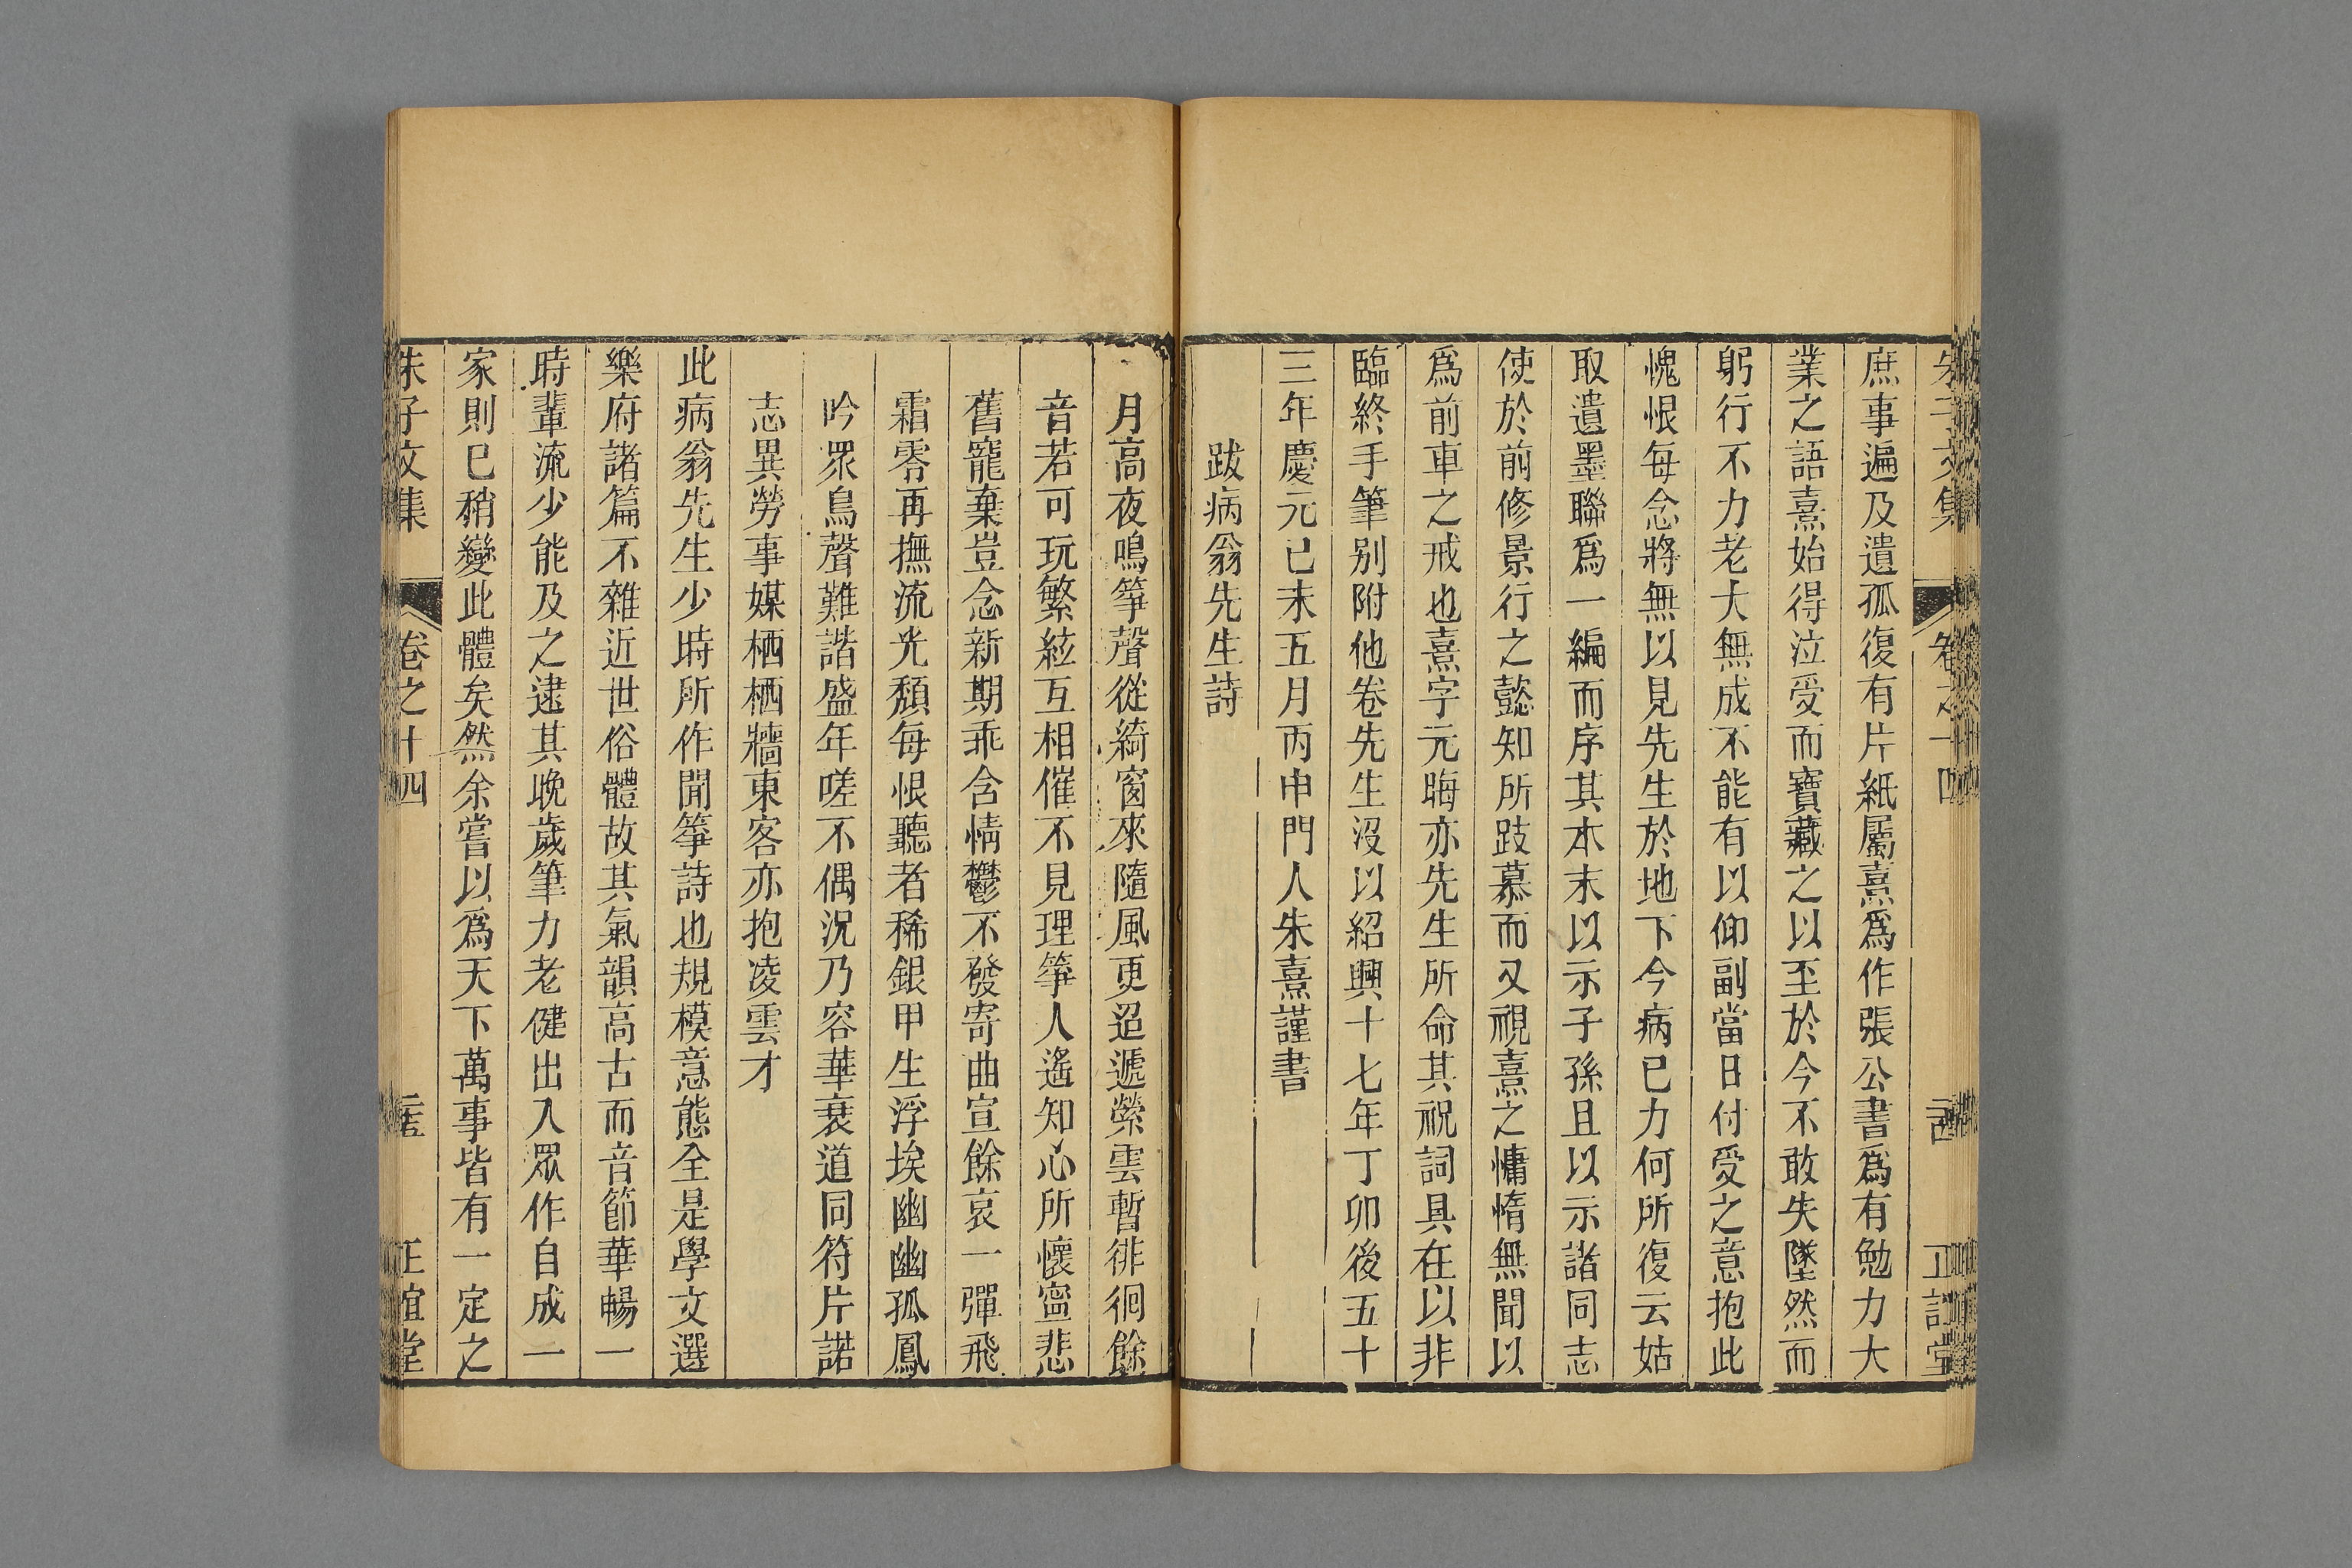 朱子文集 卷之十四 二十四 正誼堂
庶事遍及遺孤復有片紙屬熹爲作張公書爲有勉力大
業之語熹始得泣受而寶藏之以至於今不敢失墜然而
躬行不力老大無成不能有以仰副當日付受之意抱此
愧恨每念將無以見先生於地下今病已力何所復云姑
取遺墨聯爲一編而序其本末以示子孫且以示諸同志
使於前修景行之懿知所跂慕而又視熹之慵惰無聞以
爲前車之戒也熹字元晦亦先生所命其祝詞具在以非
臨終手筆别附他卷先生沒以紹興十七年丁卯後五十
三年慶元己未五月丙申門人朱熹謹書
跋病翁先生詩
月高夜鳴箏聲從綺窗來隨風更迢遞縈雲暫徘徊餘
音若可玩繁絃互相催不見理箏人遙知心所懷寍悲
舊寵棄豈念新期乖含情鬱不發寄曲宣餘哀一彈飛
霜零再撫流光頹每恨聽者稀銀甲生浮埃幽幽孤鳳
吟眾鳥聲難諧盛年嗟不偶況乃容華衰道同符片諾
志異勞事媒栖栖牆東客亦抱凌雲才
此病翁先生少時所作聞箏詩也規模意態全是學文選
樂府諸篇不雜近世俗體故其氣韻高古而音節華暢一
時輩流少能及之逮其晚歲筆力老健出入眾作自成一
家則已稍變此體矣然余嘗以爲天下萬事皆有一定之
朱子文集 卷之十四 二十五 正誼堂